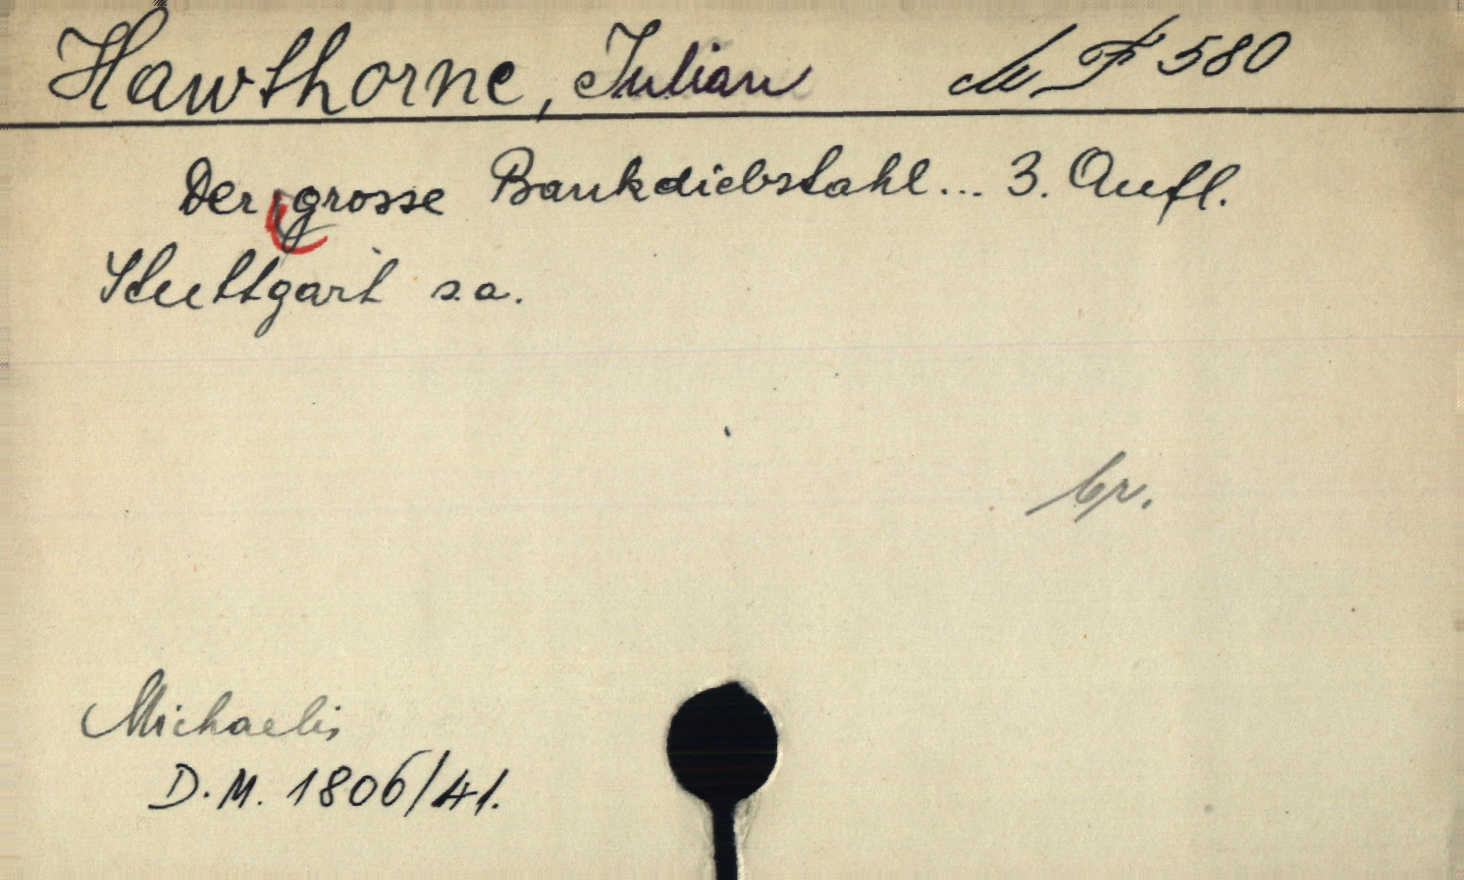 Hawthorne, Julian M F 580
Der grosse Bankdiebstahl... 3. Aufl.
Stuttgart s.a.
br.
Michaelis
D.M. 1806/41.